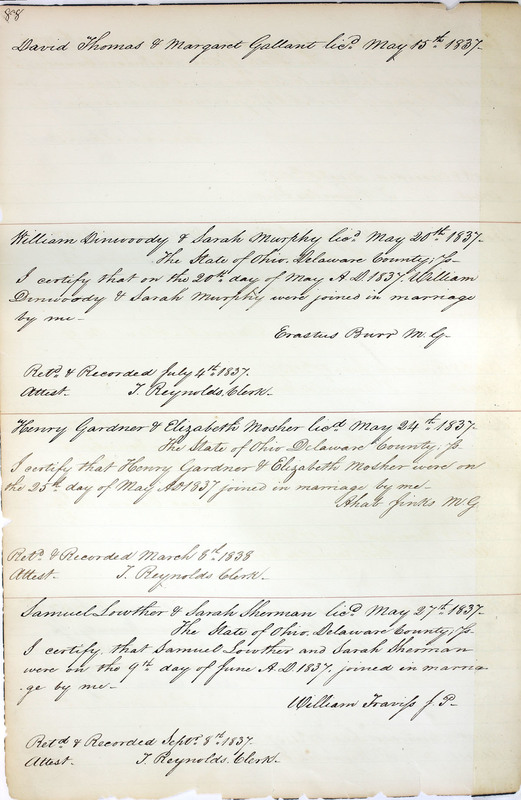 88
David Thomas & Margaret Gallant lic.d May 15th 1837.
William Dinwoody & Sarah Murphy lic.d May 20th 1837.
The State of Ohio. Delaware County; ss.
I certify that on the 20th day of May A.D. 1837. William
Dinwoody & Sarah Murphy were joined in marriage
by me –
Erastus Burr M.G.
Ret.d & Recorded July 4th 1837.
Attest. J. Reynolds. Clerk.
Henry Gardner & Elizabeth Mosher lic.d May 24th 1837.
The State of Ohio Delaware County; ss.
I certify that Henry Gardner & Elizabeth Mosher were on
the 25th day of May A.D 1837 joined in marriage by me –
Ahab Jinks M.G.
Ret.d & Recorded March 8th 1838
Attest. J. Reynolds Clerk.
Samuel Lowther & Sarah Sherman lic.d May 27th 1837.
The State of Ohio. Delaware County, ss.
I certify that Samuel Lowther and Sarah Sherman
were on the 9th day of June A.D. 1837. joined in marria
ge by me –
William Traviss J.P.
Ret.d & Recorded Sept.r 8th 1837.
Attest. J. Reynolds. Clerk –